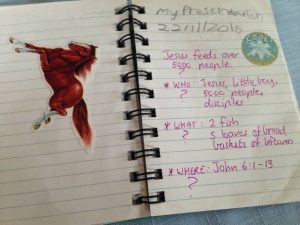 my Presentation
22/11/2015
Jesus feeds over
5000 people
?
* WHO: Jesus, little boy,
? 5000 people,
disciples
* WHAT: 2 fish
? 5 loaves of bread
baskets of leftovers
* WHERE: John 6:1-13
?